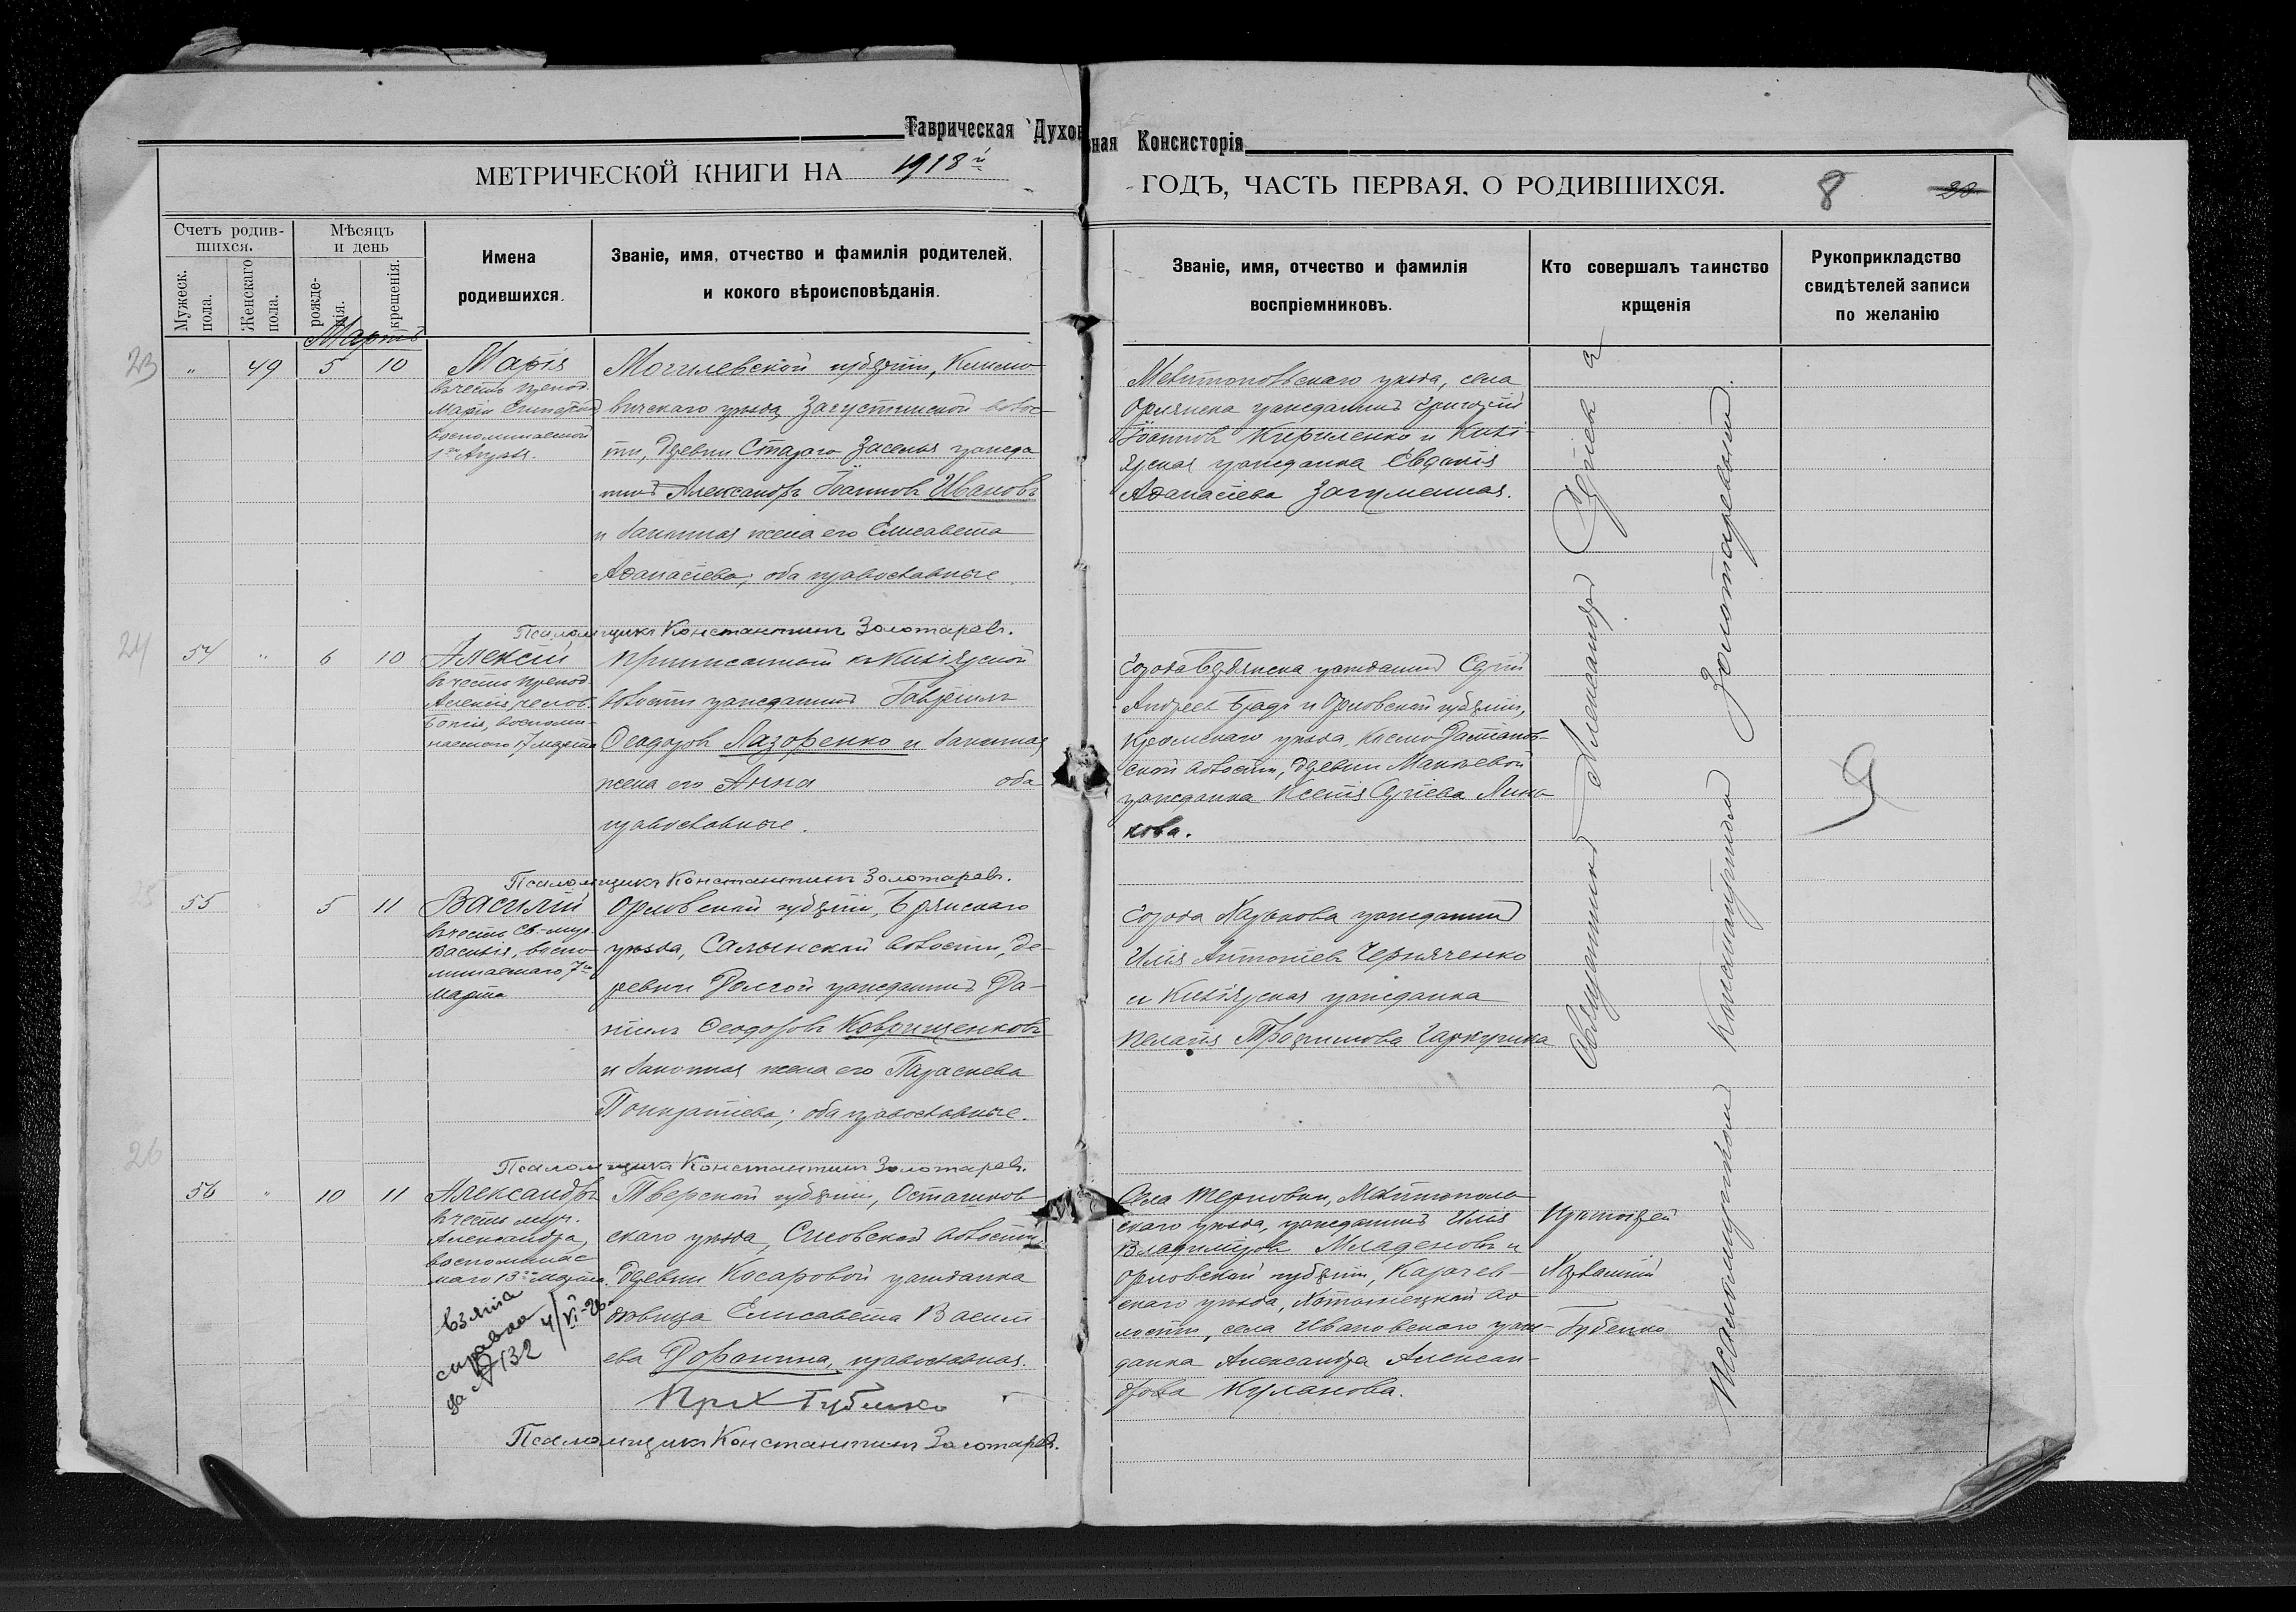 Таврическая Духовная Консисторія
МЕТРИЧЕСКОЙ КНИГИ НА 1918й ГОДЪ, ЧАСТЬ ПЕРВАЯ, О РОДИВШИХСЯ.
8
Счетъ родив-
шихся.
Мужеск.
пола.
Женскаго
пола.
Мѣсяцъ
и день
рожде-
нія.
крещенія.
Имена
родившихся.
Званіе, имя, отчество и фамилія родителей,
и кокого вѣроисповѣданія.
Званіе, имя, отчество и фамилія
воспріемниковъ.
Кто совершалъ таинство
крщенія
Рукоприкладство
свидѣтелей записи
по желанію
Мартъ
23
" 49 5 10
Марія
въ честь препод.
Маріи Египетской
воспоминаемой
1го Апрѣля.
Могилевской губерніи, Климо-
вичскаго уѣзда, Загустинской волос-
ти, деревни Стараго Заселья гражда
нинъ Александръ Іоанновъ Ивановъ
и законная жена его Елисавета
Аѳанасіева; оба православные.
Псаломщикъ Константинъ Золотаревъ.
Мелитопольскаго уѣзда, села
Орлянска гражданинъ Григорій
Іоанновъ Кириленко и Кизі-
ярская гражданка Евдокія
Аѳанасіева Загуменная.
24
54 " 6 10
Алексій
въ честь препод.
Алексія, человѣ.
Божія, воспоми-
наемаго 17 марта
Приписанный къ Кизіярской
волости гражданинъ Гавріилъ
Ѳеодоровъ Лазоренко и законная
жена его Анна оба
православные.
Псаломщикъ Константинъ Золотаревъ.
Города Бердянска гражданинъ Сергій
Андреевъ и Орловской губерніи,
Кромскаго уѣзда, Космо-Даміанов-
ской волости, деревни Макѣевой
гражданка Ксенія Сергіева Лина-
кова.
25
55 5 11
Василій
въ честь св.-муч.
Василія, воспо-
минаемаго 7го
марта
Орловской губерніи, Брянскаго
уѣзда, Салынской волости, де-
ревни Долгой гражданинъ Да-
ніилъ Ѳеодоровъ Ковригценковъ
и законная жена его Параскева
Понкратіева; оба православные.
Псаломщикъ Константинъ Золотаревъ.
Города Харькова гражданинъ
Илія Антоніевъ Черняченко
и Кизіярская гражданка
Пелагія Трофимова Гаркушка
26
56 " 10 11
Александръ
въ честь муч.
Александра,
воспоминае-
маго 13го марта.
Взята
справка 4/VI-26
за № 132
Тверской губерніи, Осташков-
скаго уѣзда, волости,
деревни Косаровой гражданка
вдовица Елисавета Васили-
ева Доронина, православная.
Прот Губенко
Псаломщикъ Константинъ Золотаревъ.
Села Терновки, Мелитополь-
скаго уѣзда, гражданинъ Илія
Владиміровъ Младеновъ и
Орловской губерніи, Карачев-
скаго уѣзда, Хотынецкой во-
лости, села Ивановскаго граж-
данка Александра Алексан-
дрова Куланова.
Протоіерей
Харлампій
Губенко
Священникъ Александръ Сергіевъ съ
Псаломщикомъ Константиномъ Золотаревымъ.